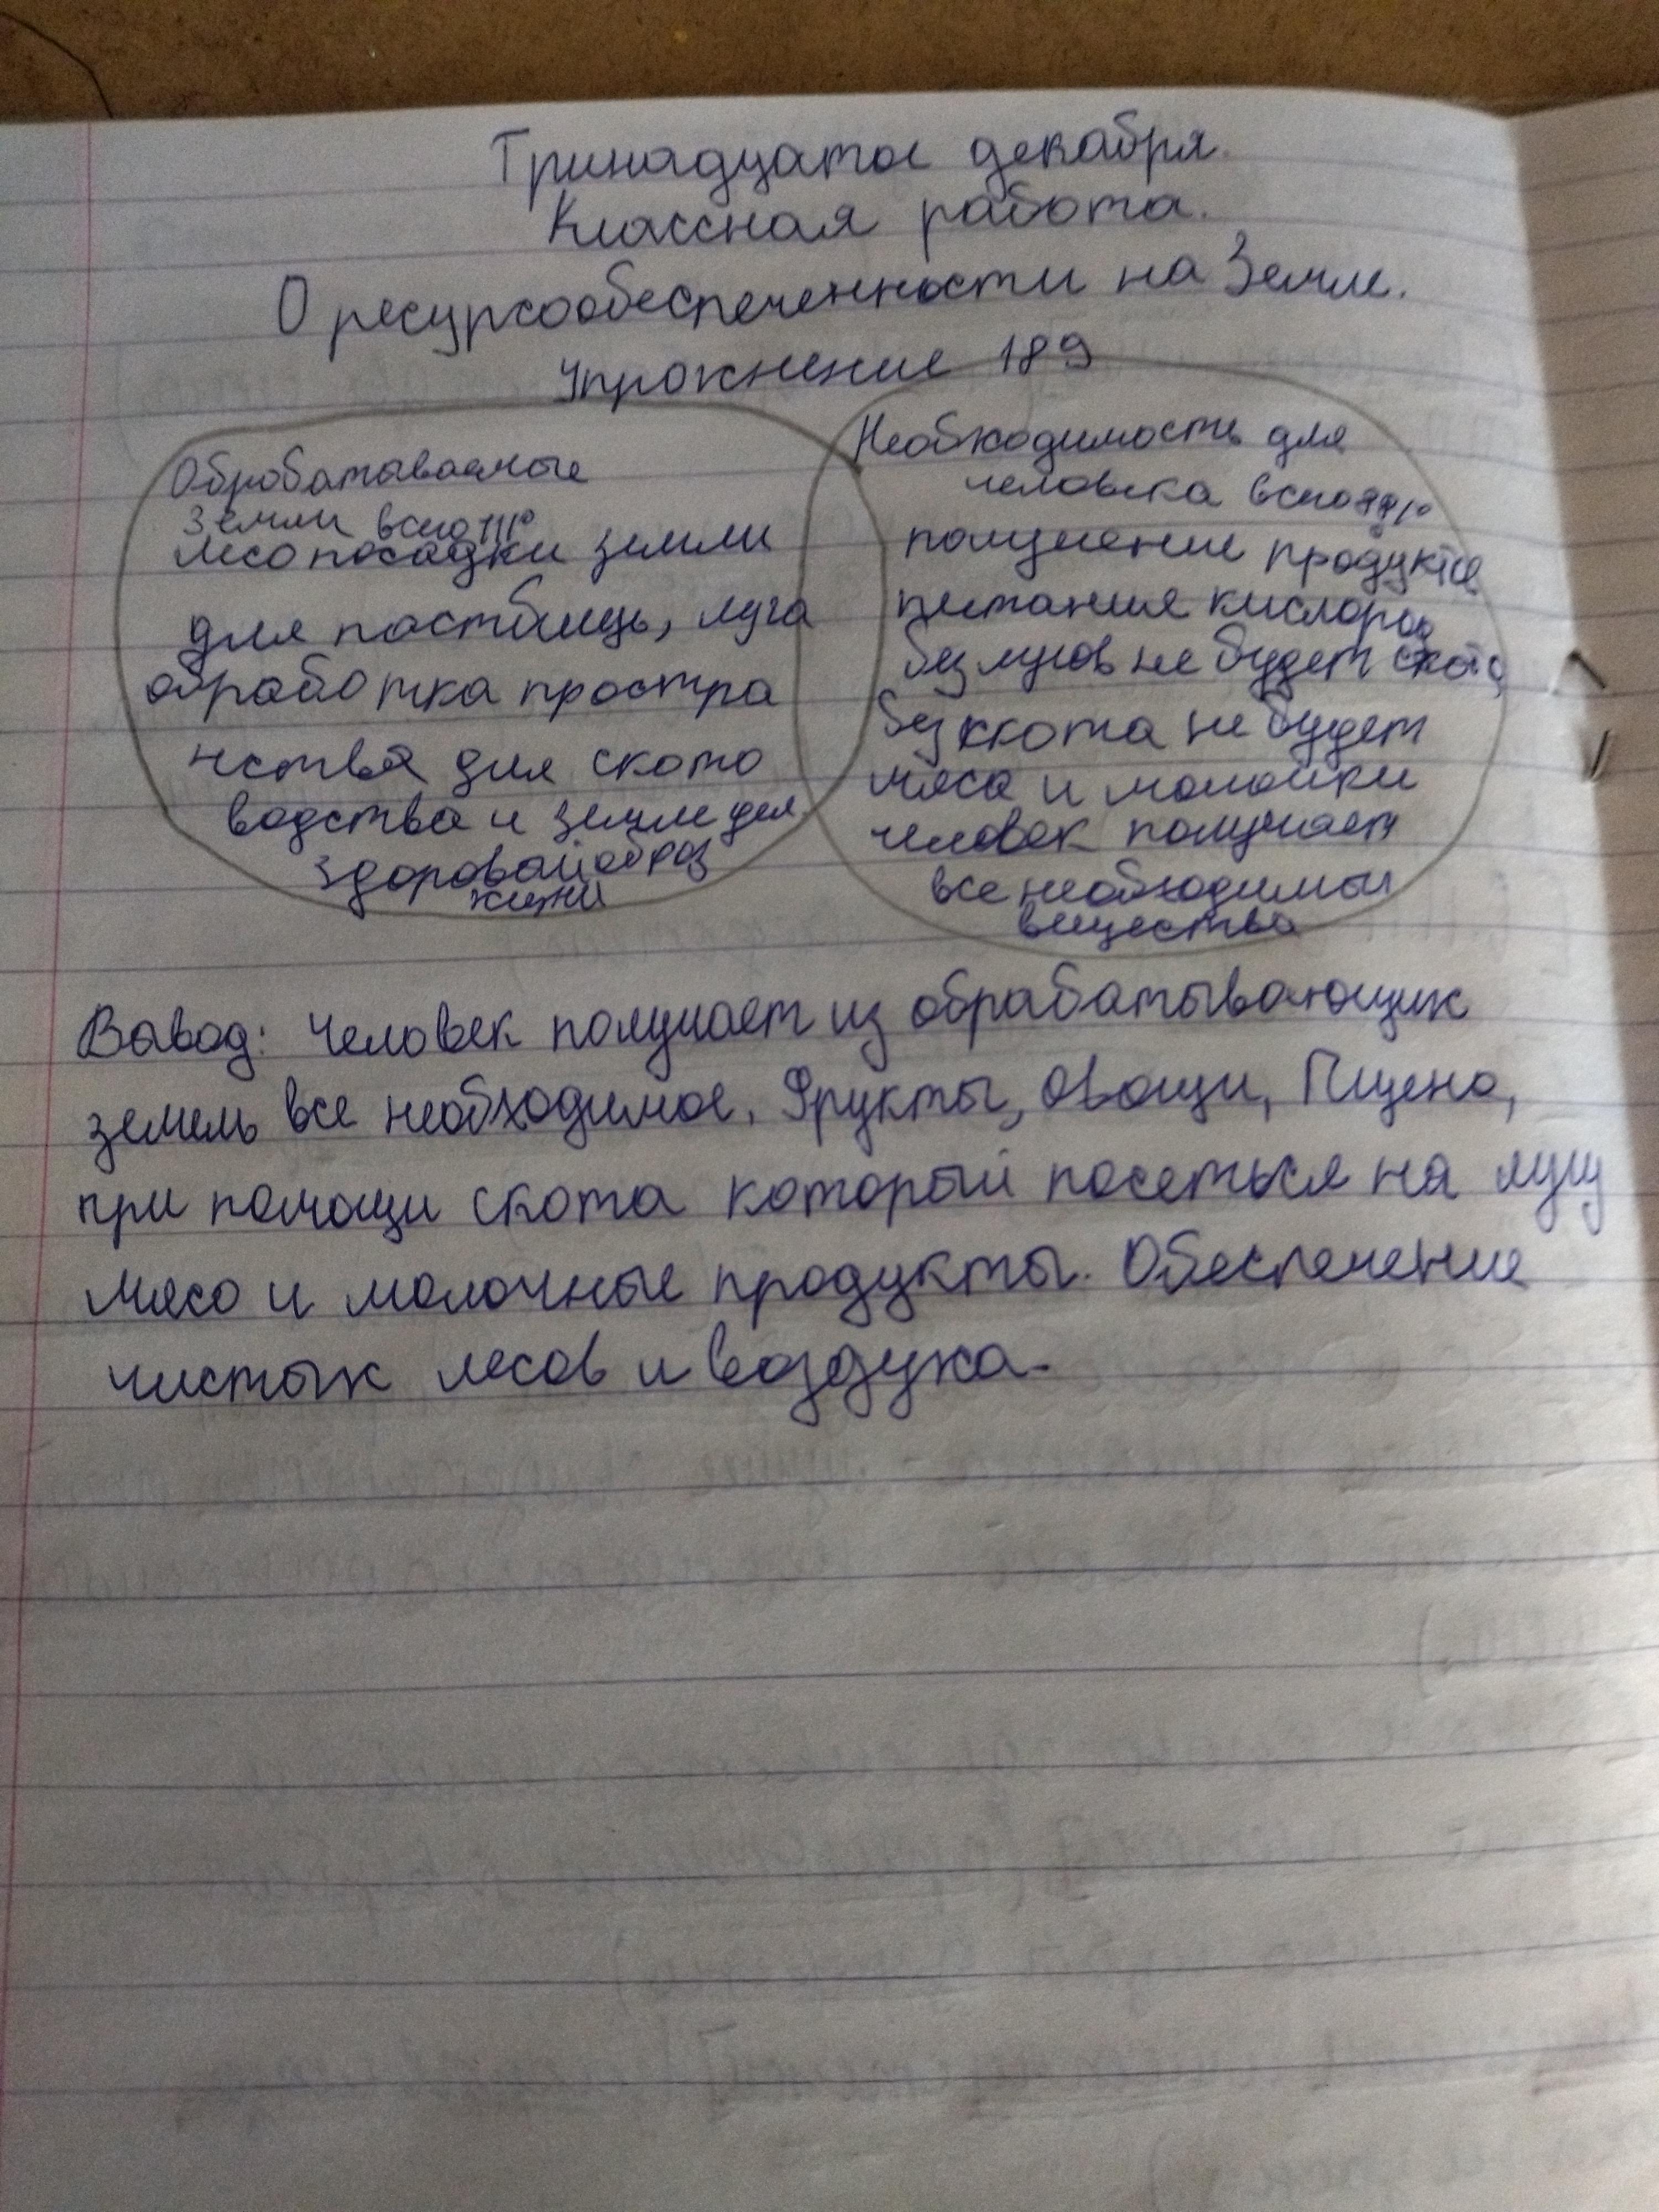 Тринадцатое декабря.
Классная работа.
О ресурсообеспеченности на Земле.
Упрожнение 189
Обробатываемые
земли всего 11%
лесопосадки земли
для постбищь, луга
обработка простра
нства для ското
водства и земле дел
здоровый образ
жизни
Необходимость для
человека всего
получение продуктов
питания кислорода
без лугов не будет скота
без скота не будет
мяса и молочки
человек получает
все необходимые
вещества
Вывод: Человек получает из обрабатывающих
земель все необходимое. Фрукты, овощи, Пщено,
при помощи скота который посеться на лугу
мясо и молочные продукты. Обеспечение
чистых лесов и воздуха.